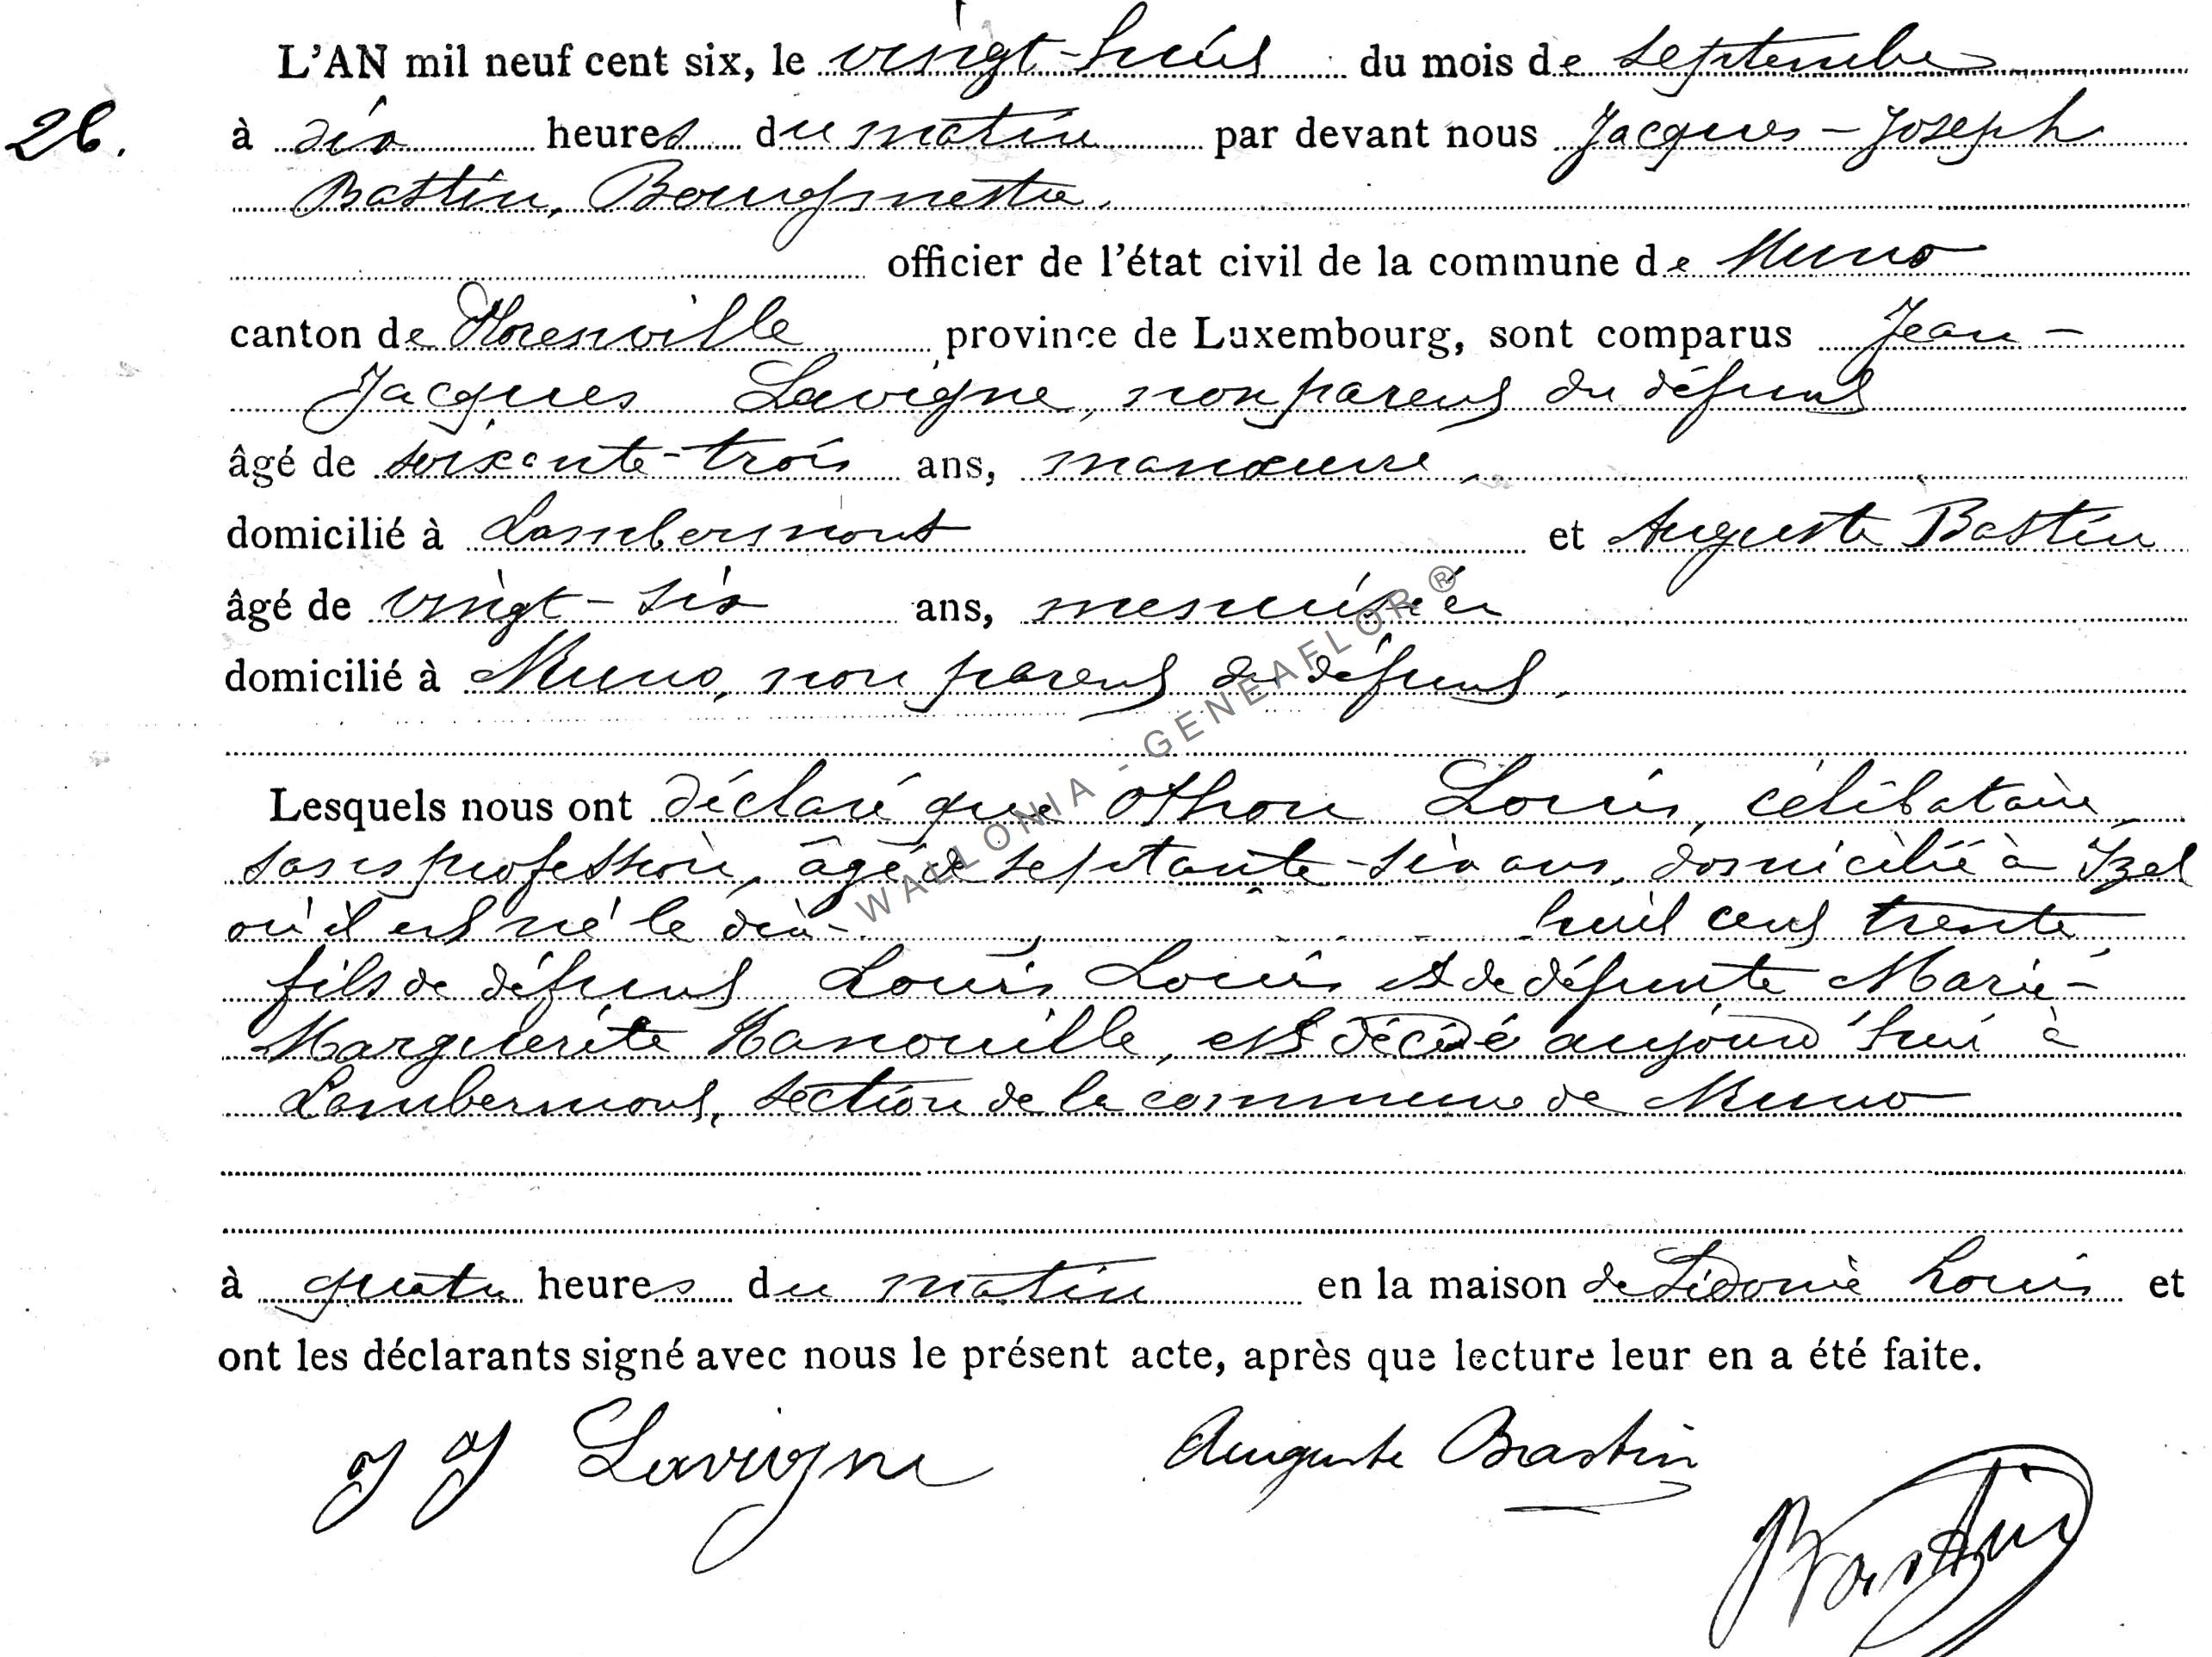 L'AN mil neuf cent six, le vingt-huit du mois de septembre
26. à dix heures du matin par devant nous Jacques-Joseph
Bastin, Bourgmestre,
officier de l'état civil de la commune de Muno
canton de Florenville province de Luxembourg, sont comparus Jean-
Jacques Lavigne, non parent du défunt
âgé de soixante-trois ans, manœuvre,
domicilié à Lambermont et Auguste Bastin
âgé de vingt-six ans, menuisier
domicilié à Muno, non parent du défunt.
Lesquels nous ont déclaré que Othon Louis, célibataire
sans profession, âgé de septante-six ans, domicilié à Izel
où il est né le dix- huit cent trente,
fils de défunt Louis Louis et de défunte Marie-
Marguerite Hanouille, est décédé aujourd'hui à
Lambermont, section de la commune de Muno
à quatre heures du matin en la maison de Sidonie Louis et
ont les déclarants signé avec nous le présent acte, après que lecture leur en a été faite.
J J Lavigne Auguste Bastin
Bastin
WALLONIA - GENEAFLOR ®